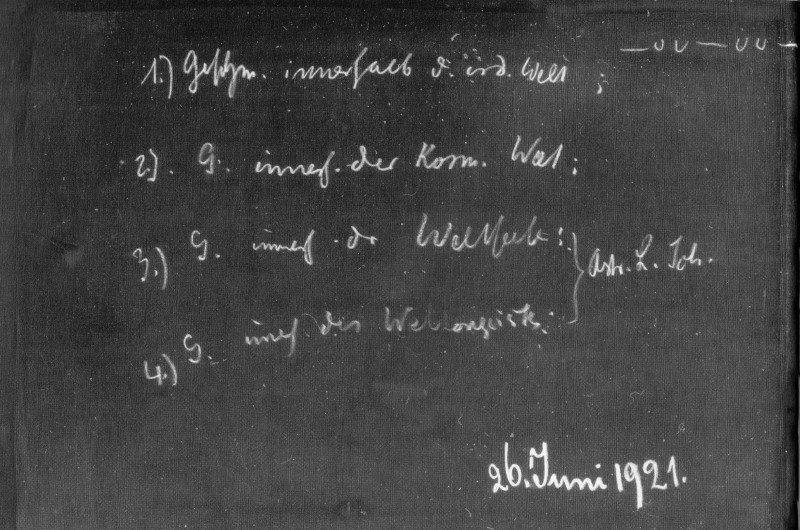 — ∪ ∪ — ∪ ∪ —
1.) Geschm. innerhalb d. ird. Welt ;
2.). G. innerh. der Kosm. Welt :
3.) G. innerh. der Weltseele : } Astr. L. Joh.
4.) G. innerh. des Weltengeistes.
26. Juni 1921.